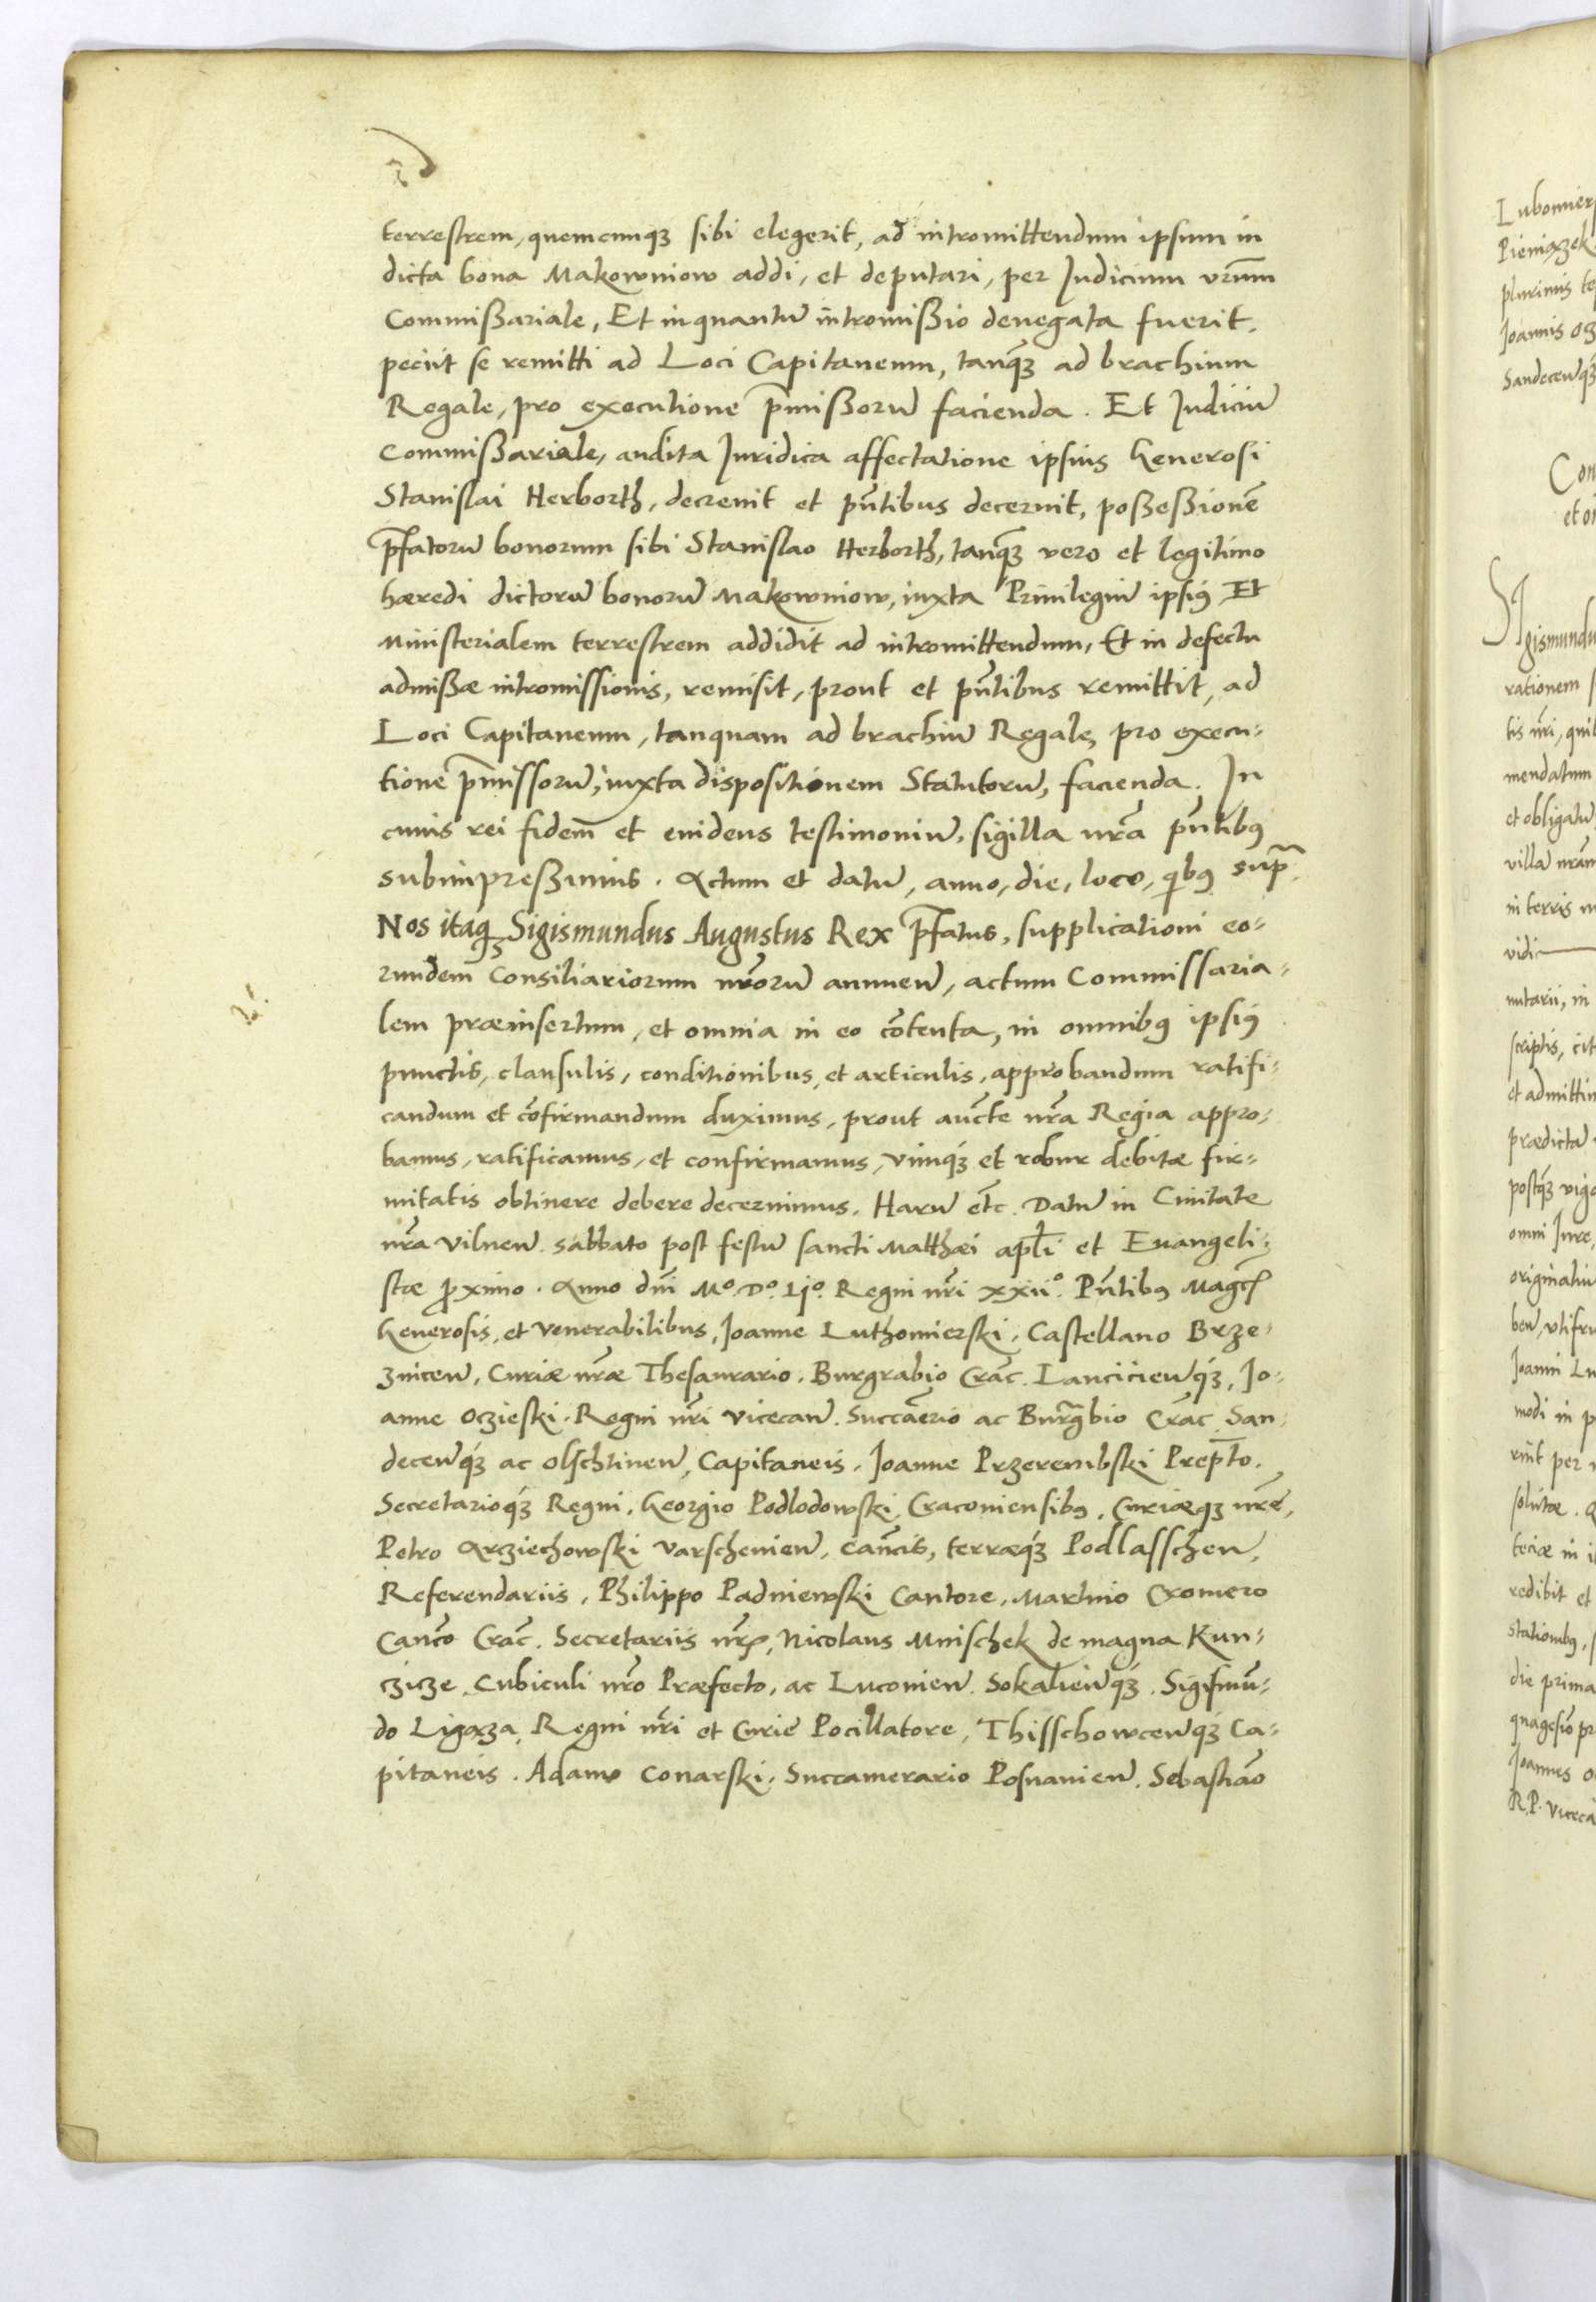 terrestrem, quemcunqꝫ sibi elegerit, ad intromittendum ipsum in
dicta bona Makowniow addi, et deputari, per Judicium vr̃um
Commißariale, Et inquantũ intromißio denegata fuerit,
peciit se remitti ad Loci Capitaneum, tanq̃ꝫ ad brachium
Regale, pro executione p̃mißorũ facienda. Et Judiciũ
Commißariale, audita Juridica affectatione ipsius Generosi
Stanislai Herborth, decrevit et pn̄tibus decernit, poßeßionẽ
p̃fatorũ bonorum sibi Stanislao Herborth, tanq̃ꝫ vero et legitimo
hæredi dictorũ bonorũ Makowniow, iuxta Priuilegiũ ipsiꝰ Et
Ministerialem terrestrem addidit ad intromittendum, Et in defectu
admißæ intromissionis, remisit, prout et pn̄tibus remittit, ad
Loci Capitaneum, tanquam ad brachiũ Regale, pro execu-
tione p̃missorũ, iuxta dispositionem Statutorũ, facienda. In
cuius rei fidem et euidens testimoniũ, sigilla nr̃a pn̄tibꝰ
subimpreßimus. Actum et datũ, anno, die, loco, quibꝰ supᷓ.
Nos itaqꝫ Sigismundus Augustus Rex p̃fatus, supplicationi eo-
rundem Consiliariorum nr̃orũ annuen̄, actum Commissaria-
lem præinsertum, et omnia in eo cõtenta, in omnibꝰ ipsiꝰ
punctis, clausulis, conditionibus, et articulis, approbandum ratifi-
candum et cõfirmandum duximus, prout auc̃te nr̃a Regia appro-
bamus, ratificamus, et confirmamus, vimqꝫ et robur debitæ fir-
mitatis obtinere debere decernimus. Harũ etc̃. Datũ in Ciuitate
nr̃a Vilnen̄. sabbato post festũ sancti Matthæi apl̃i et Euangeli-
stæ ꝓximo. Anno dn̄i Mº. Dº. Ljº. Regni nr̃i xxiiº. Pn̄tibꝰ Mag
Generosis, et Venerabilibus, Joanne Luthomierski, Castellano Brze-
znicen̄, Curiæ nr̃æ Thesaurario, Burgrabio Crac̃. Lancicien̄qꝫ, Jo-
anne Oczieski, Regni nr̃i Vicecan̄. Succãerio ac Burg̃bio Crac̃. San-
decen̄qꝫ ac Olschtinen̄, Capitaneis, Joanne Przerembski Prep̃to.
Secretarioqꝫ Regni, Georgio Podlodowski Cracouiensibꝰ, Curiæqꝫ nr̃e,
Petro Arziechowski Varschouien̄, Can̄cis, terræqꝫ Podlasschen̄,
Referendariis, Philippo Padniewski Cantore, Martino Cromero
Can̄co Crac̃. Secretariis nr̃ꝝ, Nicolaus Mnischek de magna Kun-
czicze, Cubiculi nr̃o Præfecto, ac Luconien̄. Sokalien̄qꝫ. Sigismũ-
do Ligæza, Regni nr̃i et Curie Pocillatore, Thisschowcen̄qꝫ Ca-
pitaneis. Adamo Conarski, Succamerario Posnanien̄. Sebastiãо
Lubomier
Pieniązek
plurimis te
Joannis
Sandecen̄qꝫ
Con
et
Sigismundu
rationem
tis nr̃i, qui
mendatum
et obligatũ
villã nr̃am
in terris
vidi
nutarii, in
scriptis, cit
et admittin
prædictũ
postqꝫ
omni Jure,
originaliũ
ben̄, vtifru
Joanni Lu
modi in p
rint per
solutæ.
teriæ in
redibit et
stationibꝰ,
die prima
quagesiõ pr
Joannes O
R. P. Viceca